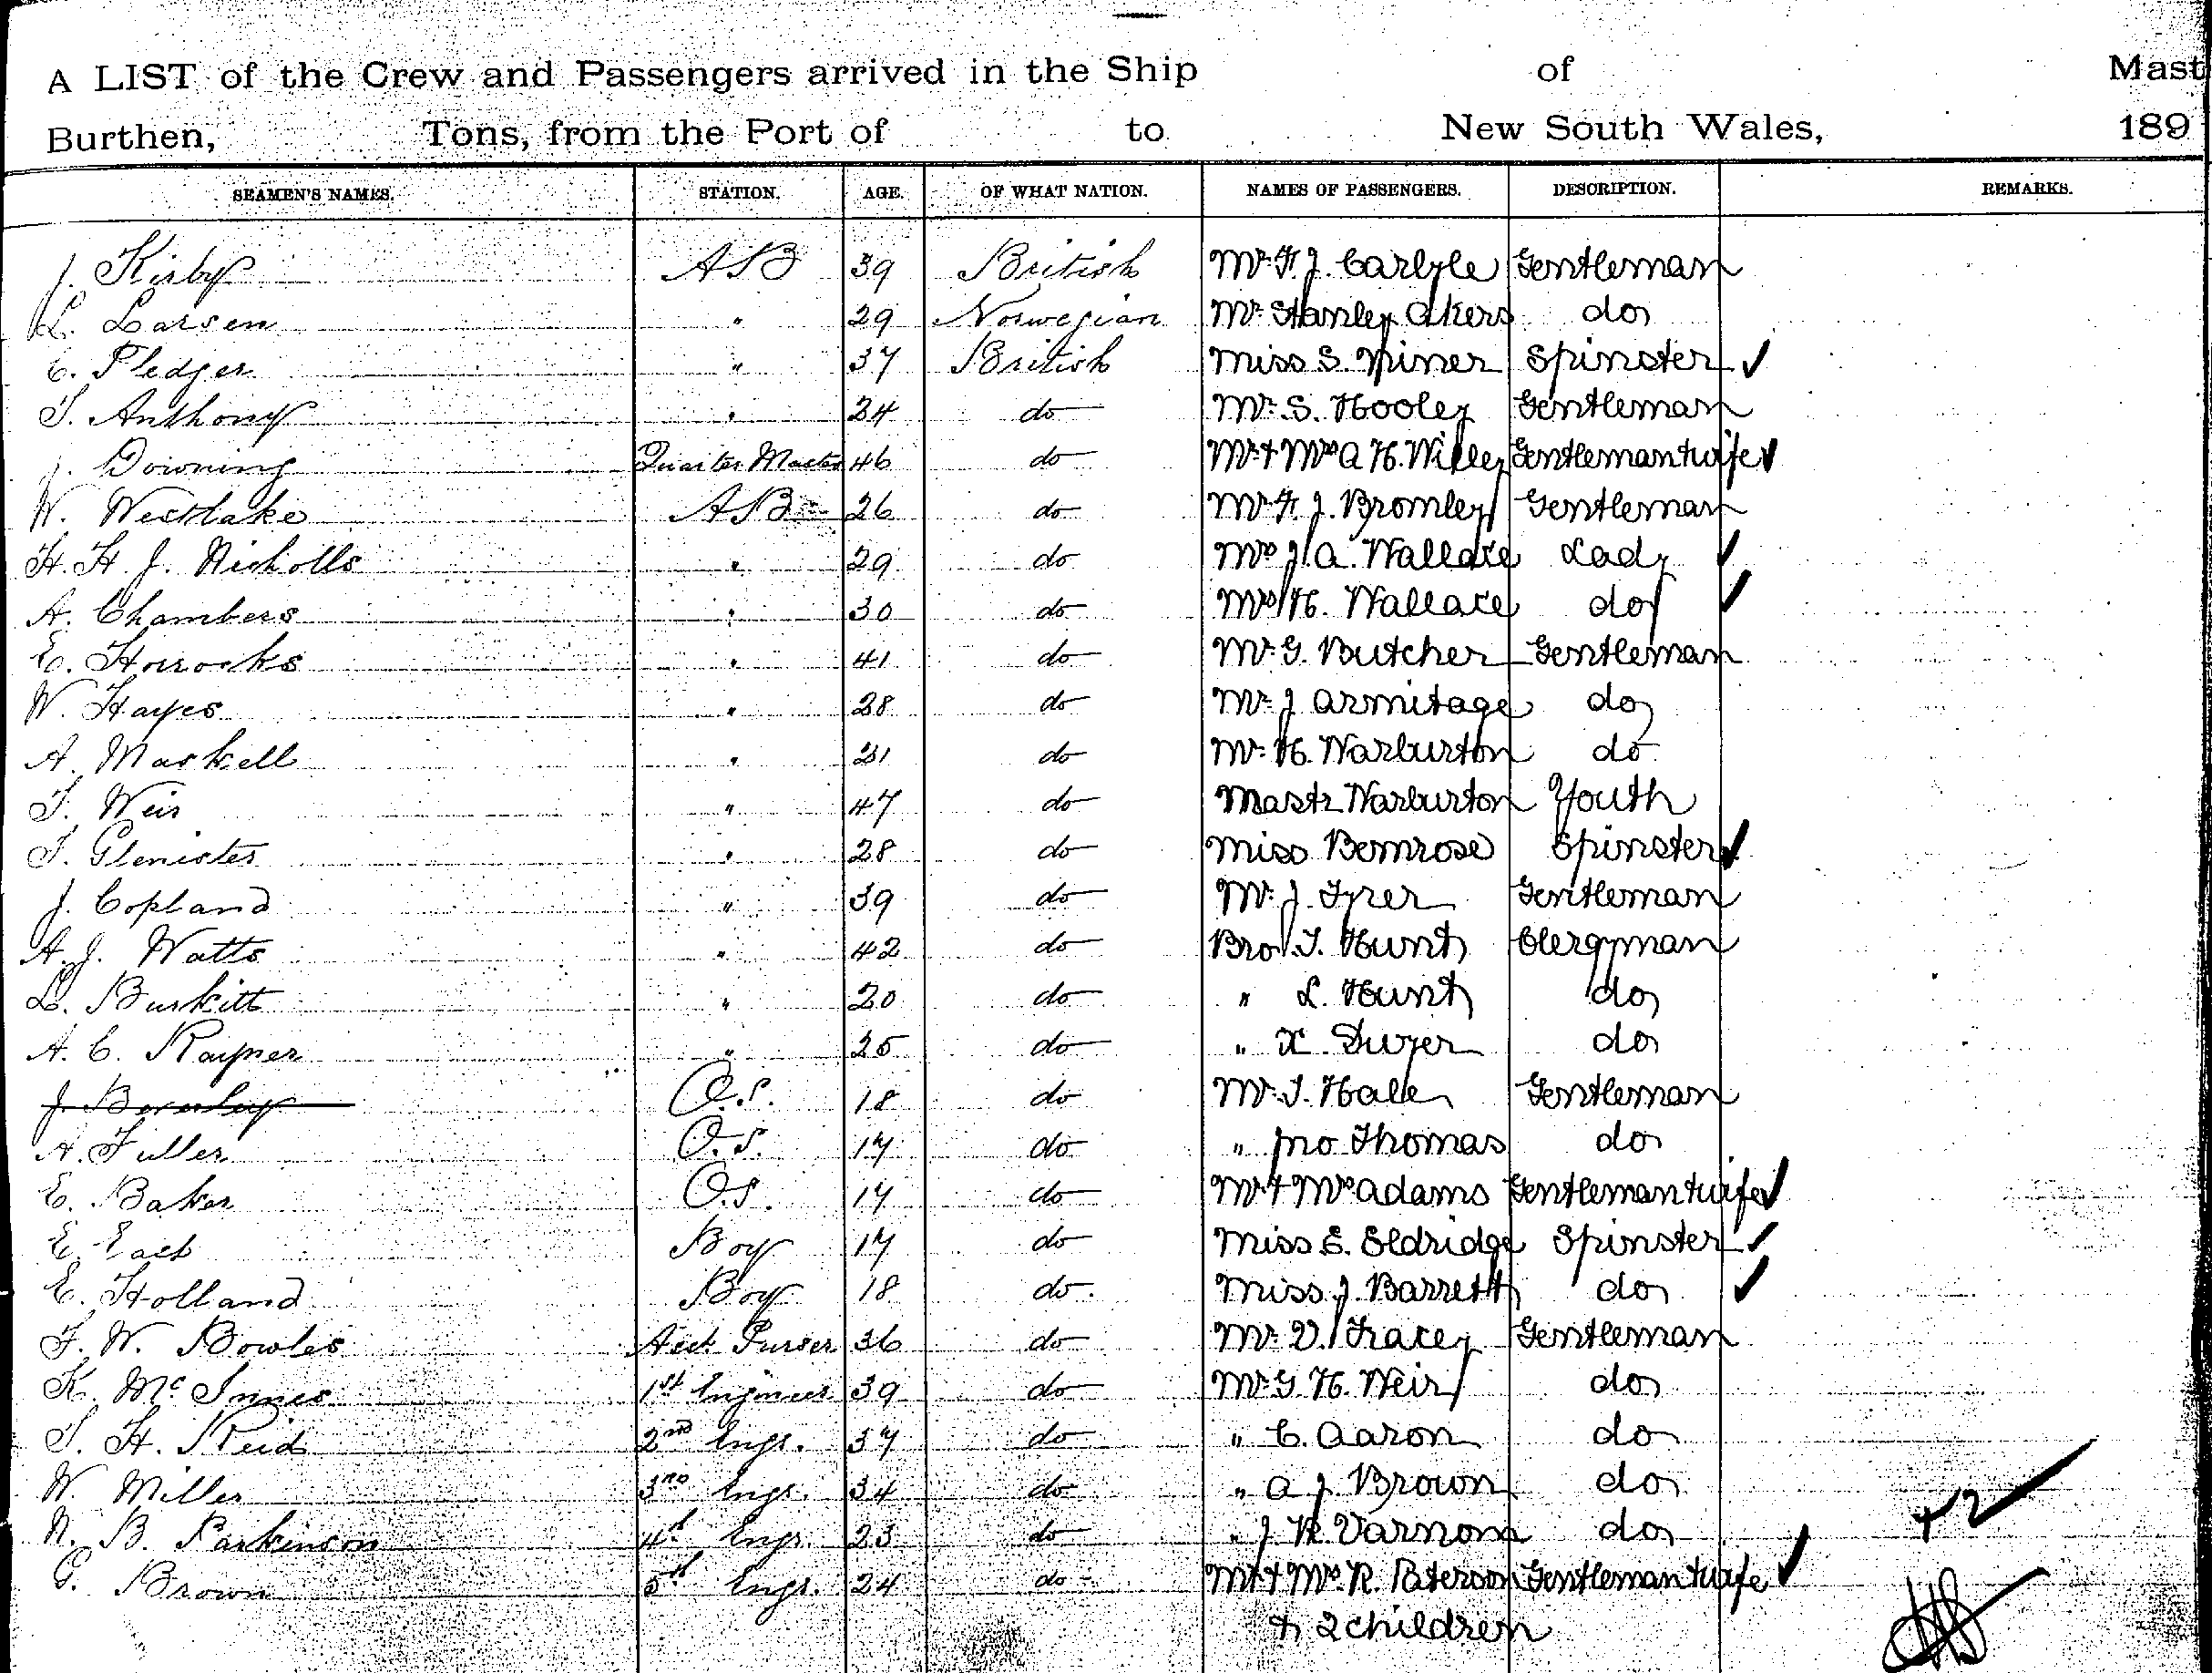 A LIST of the Crew and Passengers arrived in the Ship of Mast
Burthen, Tons, from the Port of to New South Wales, 189
SEAMEN'S NAMES. STATION. AGE. OF WHAT NATION. NAMES OF PASSENGERS. DESCRIPTION. REMARKS.
J. Kirby AB 39 British Mr. F. J. Carlyle Gentleman
L. Larsen " 29 Norwegian Mr. Stanley Akers do
E. Pledger " 37 British Miss S. Miner Spinster ✓
T. Anthony " 24 do Mr. S. Hooley Gentleman
J. Downing Quarter Master 46 do Mr. + Mrs A. H. Willey Gentleman + wife ✓
W. Westlake AB 26 do Mr. F. J. Bromley Gentleman
H. H. J. Nicholls " 29 do Mrs J. A. Wallace Lady ✓
A. Chambers " 30 do Mrs H. Wallace do ✓
E. Horrocks " 41 do Mr. G. Butcher Gentleman
W. Hayes " 28 do Mr. J Armitage do
A. Maskell " 21 do Mr. H. Warburton do
T. Weir " 47 do Mastr Warburton Youth
T. Glenister " 28 do Miss Bemrose Spinster ✓
J. Copland " 39 do Mr. J. Tyrer Gentleman
A. J. Watts " 42 do Bro. T. Hunt Clergyman
L. Burkitt " 20 do " L. Hunt do
A. C. Rayner " 25 do " X. Dwyer do
J. Beverley O.S. 18 do Mr. T. Hale Gentleman
A. Fuller O.S. 17 do " Jno Thomas do
E. Baker O.S. 17 do Mr. + Mrs Adams Gentleman + wife ✓
E. East Boy 17 do Miss E. Eldridge Spinster ✓
E. Holland Boy 18 do Miss J. Barrett do ✓
F. W. Bowles Asst Purser 36 do Mr. V. Tracey Gentleman
K. McInnes 1st Engineer 39 do Mr. G. H. Weir do
T. H. Reid 2nd Engr. 37 do " C. Aaron do
W. Miller 3rd Engr. 34 do " A J. Brown do
N. B. Parkinson 4th Engr. 23 do " J. R. Varnom do
G. Brown 5th Engr. 24 do Mr + Mrs. R. Paterson Gentleman + wife ✓
+ 2 children
+2